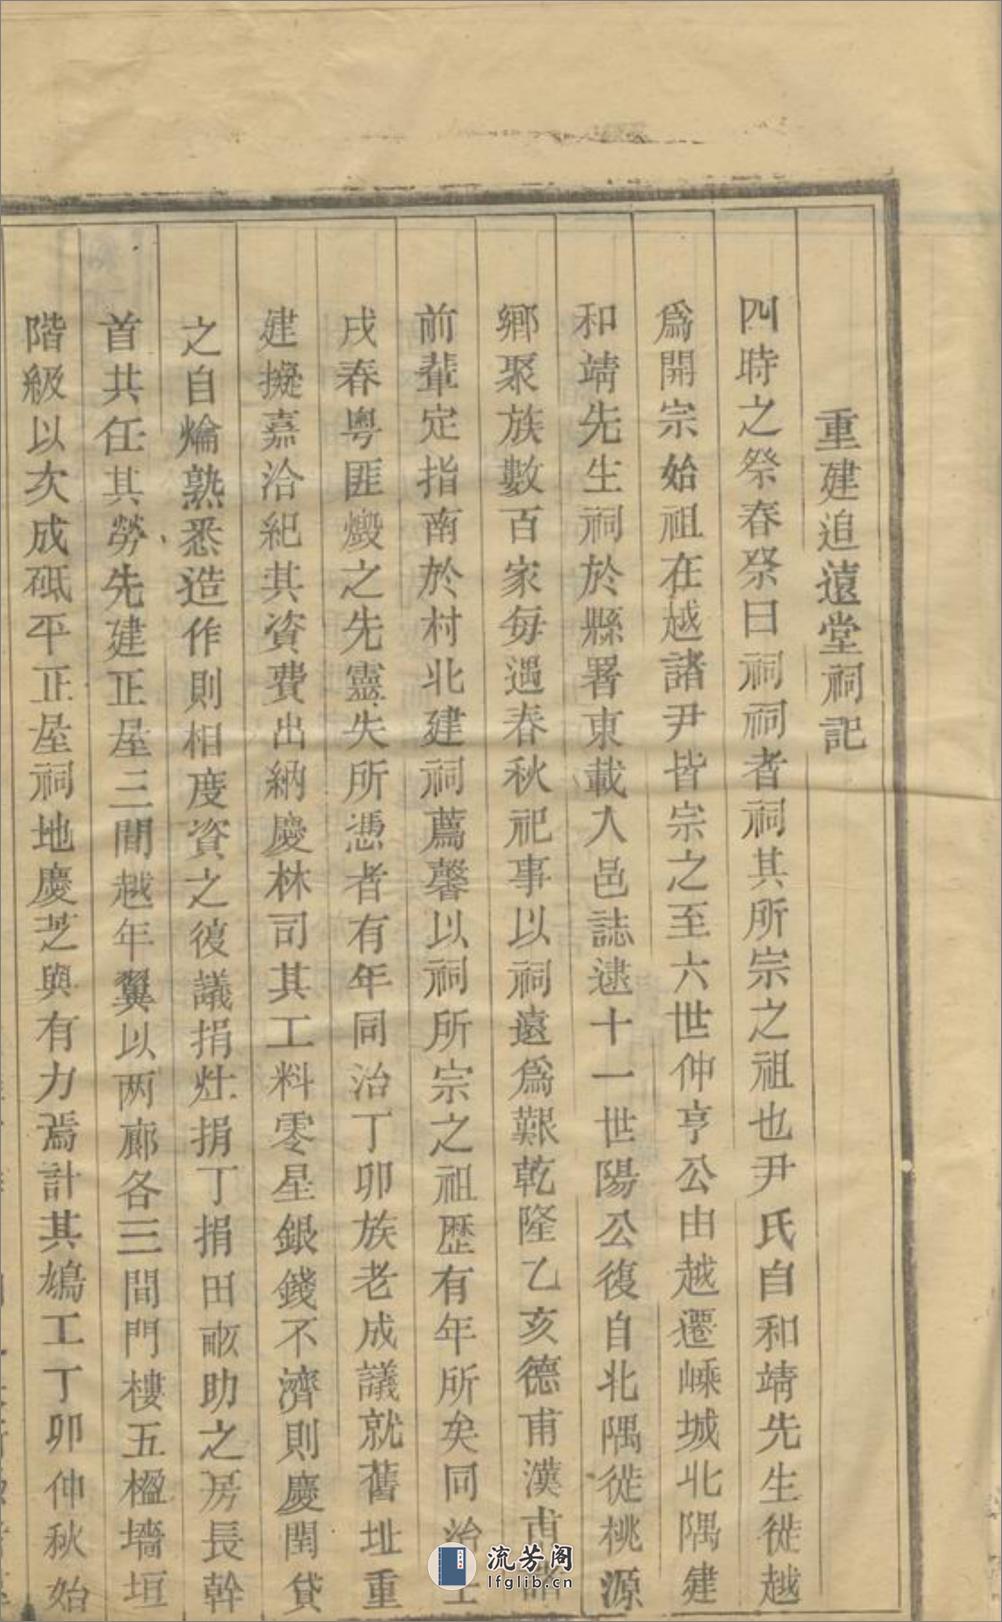 重建追遠堂祠記
四時之祭春祭曰祠祠者祠其所宗之祖也尹氏自和靖先生從越
爲開宗始祖在越諸尹皆宗之至六世仲亨公由越遷嵊城北隅建
和靖先生祠於縣署東載入邑誌逮十一世陽公復自北隅從桃源
鄉聚族數百家每遇春秋祀事以祠遠爲艱乾隆乙亥德甫漢甫諸
前輩定指南於村北建祠薦馨以祠所宗之祖歷有年所矣同治
戌春粤匪燬之先靈失所憑者有年同治丁卯族老成議就舊址重
建擬嘉洽紀其資費出納慶林司其工料零星銀錢不濟則慶閏貸
之自爚熟悉造作則相度資之復議捐灶捐丁捐田畝助之房長幹
首共任其勞先建正屋三間越年翼以兩廊各三間門樓五楹墻垣
階級以次成砥平正屋祠地慶芝與有力焉計其鳩工丁卯仲秋始
流芳阁
lfglib.cn